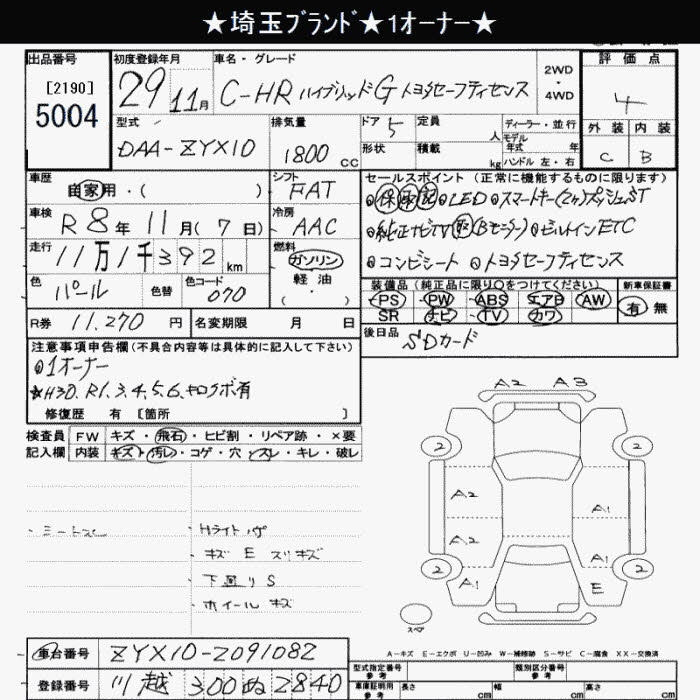 ★埼玉ﾌﾞﾗﾝﾄﾞ★1オーナー★
出品番号
[2190]
5004
初度登録年月
29 11月
車名・グレード
C-HR ハイブリッドG トヨタセーフティセンス
2WD
・
4WD
評価点
4
外装 内装
C B
型式
DAA-ZYX10
排気量
1800 cc
ドア 5
形状
定員 人
積載 kg
ディーラー・並行
モデル年式 年
ハンドル 左・右
車歴
自家用・( )
シフト
FAT
車検
R 8年 11月(7日)
冷房
AAC
走行
11万1千392 km
燃料
ガソリン
軽油
( ・ )
色
パール
色替
色コード
070
R券 11,270 円
名変期限 月 日
セールスポイント (正常に機能するものに限ります)
●保取記 ●LED ●スマートキー(2ヶ)プッシュST
●純正ナビTV(Bモニター) ●ビルトインETC
●コンビシート ●トヨタセーフティセンス
装備品 (純正品に限り○をつけてください)
PS・PW・ABS・エアB・AW
SR ナビ・TV・カワ
新車保証書
有・無
後日品
SDカード
注意事項申告欄(不具合内容等は具体的に記入して下さい)
●1オーナー
★H30.R1.3.4.5.6.キロク簿有
修復歴 有 〔箇所 〕
検査員記入欄
FW キズ・飛石・ヒビ割・リペア跡・×要
内装 キズ・汚レ・コゲ・穴・スレ・キレ・破レ
・シートスレ
・Hライトハゲ
・キズ E スリキズ
・下廻りS
・ホイールキズ
A2 A3
2 2
A2 A1
A2 A1
A1 E
2 2
スペア
A-キズ E-エクボ U-凹み W-補修跡 S-サビ C-腐食 XX-交換済
車台番号 ZYX10-2091082
登録番号 川越 300 ぬ 2840
型式指定番号 参考
類別区分番号 参考
車庫証明用参考 長さ cm 幅 cm 高さ cm